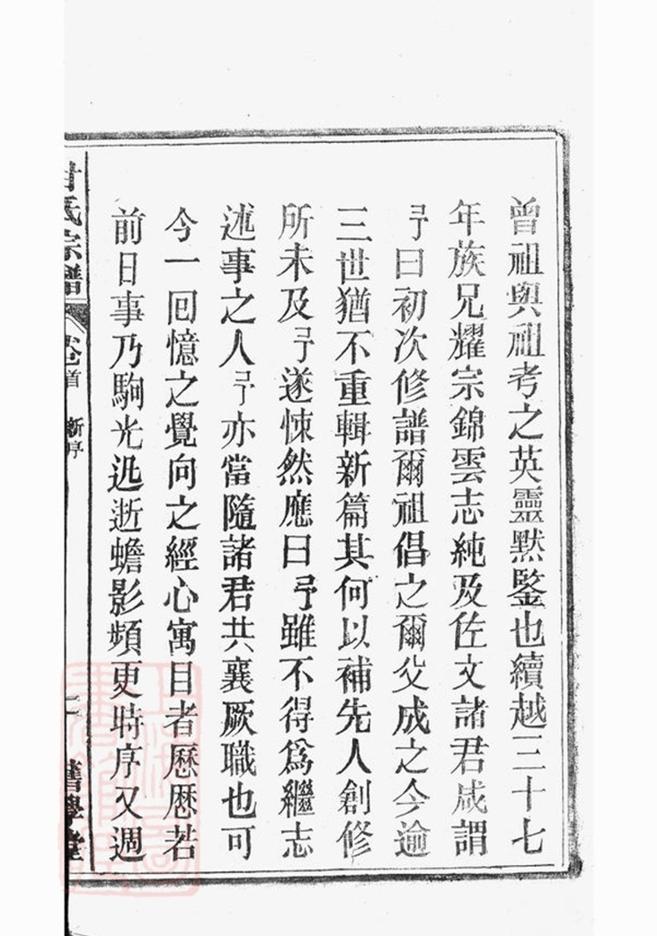 曾祖與祖考之英靈默鑒也續越三十七
年族兄耀宗錦雲志純及佐文諸君咸謂
予曰初次修譜爾祖倡之爾父成之今逾
三世猶不重輯新篇其何以補先人創修
所未及予遂悚然應曰予雖不得為繼志
述事之人予亦當隨諸君共襄厥職也可
今一回憶之覺向之經心寓目者歷歷若
前日事乃駒光迅逝蟾影頻更時序又週
氏宗譜
卷首
新序
二
堂